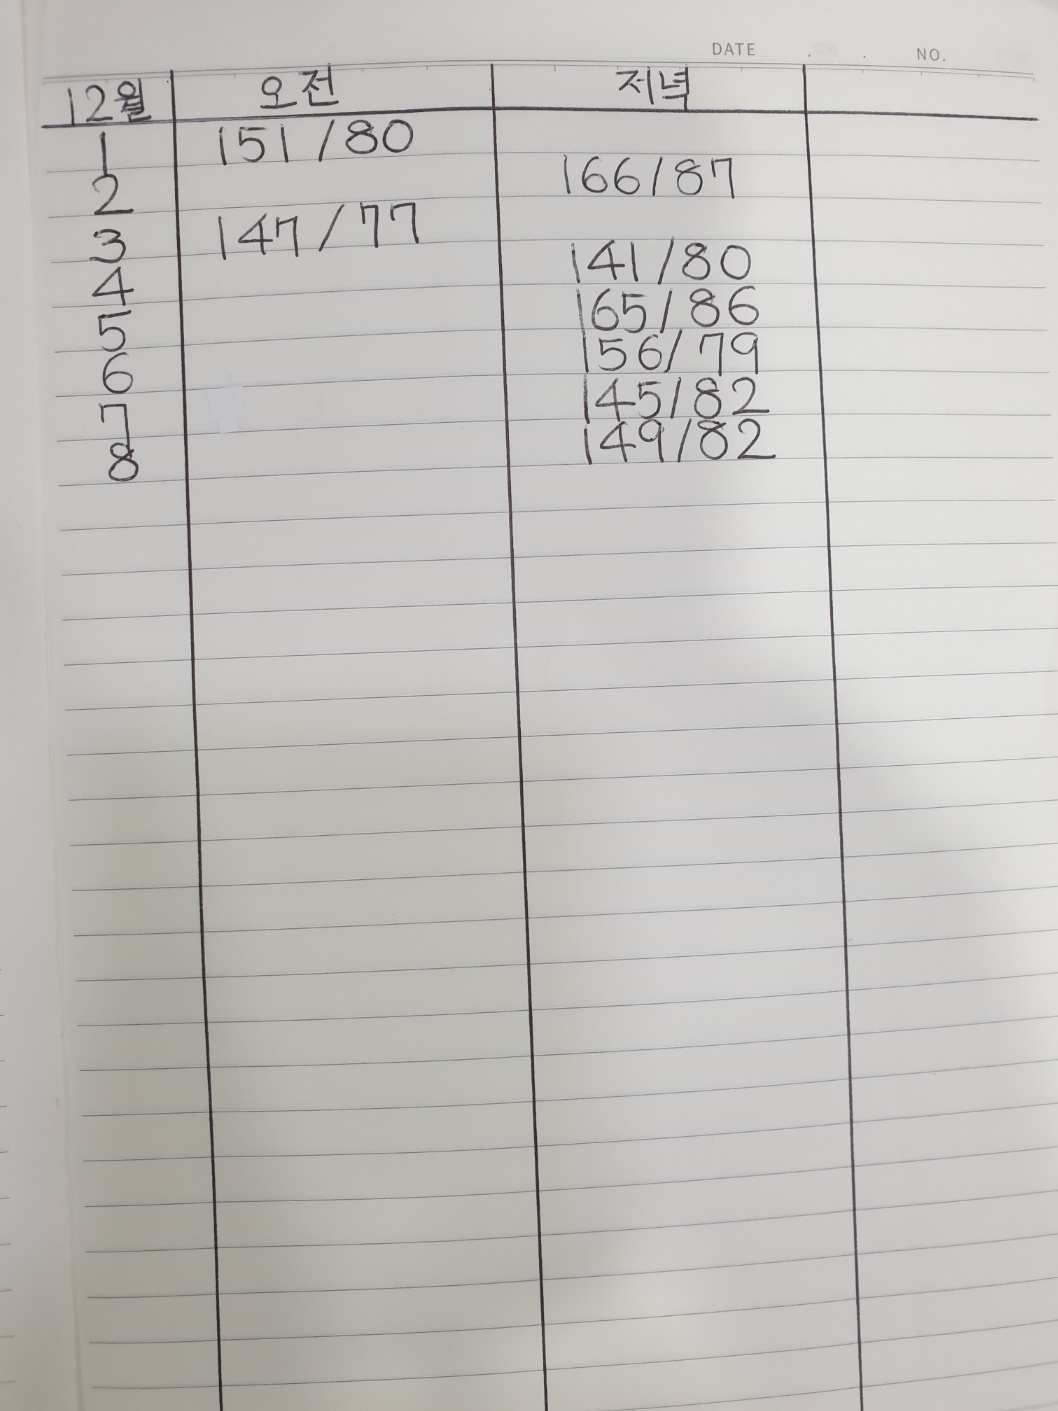 DATE . . NO.
12월 오전 저녁
1 151/80
2 166/87
3 147/77
4 141/80
5 165/86
6 156/79
7 145/82
8 149/82